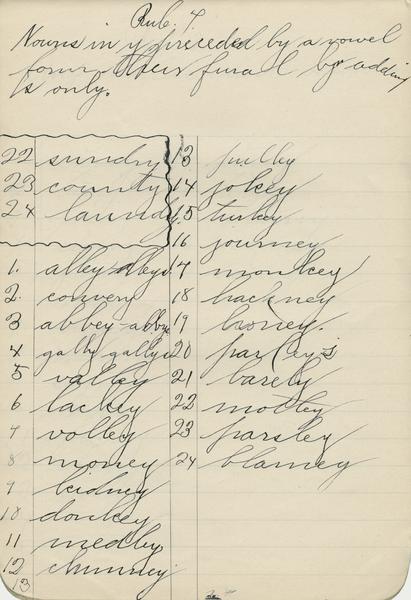 Rule. 7
Nouns in y preceded by a vowel
form their plural by adding
s only.
22 sundry
23 county
24 laundry
1. alley-alleys
2. convey
3 abbey-abbeys
4 gally gallys
5 valley
6 lackey
7 volley
8 money
9 kidney
10 donkey
11 medley
12 chimney
13
13 pulley
14 jokey
15 turkey
16 journey
17 monkey
18 hackney
19
20 parley's
21 barely
22 motley
23 parsley
24 blamey